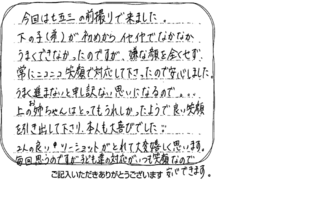 今回は七五三の前撮りで来ました。
下の子(弟)が初めからイヤイヤでなかなか
うまくできなかったのですが、嫌な顔を全くせず、
常にニコニコ笑顔で対応して下さったので安心しました。
うまく進まないと申し訳ない思いになるので…
上のお姉ちゃんはとってもうれしかったようで良い笑顔
を引き出して下さり、本人も大喜びでした。
2人の良いツーショットがとれて大変嬉しく思います。
毎回思うのですが子ども達の対応がいつも笑顔なので
ご記入いただきありがとうございます 安心できます。